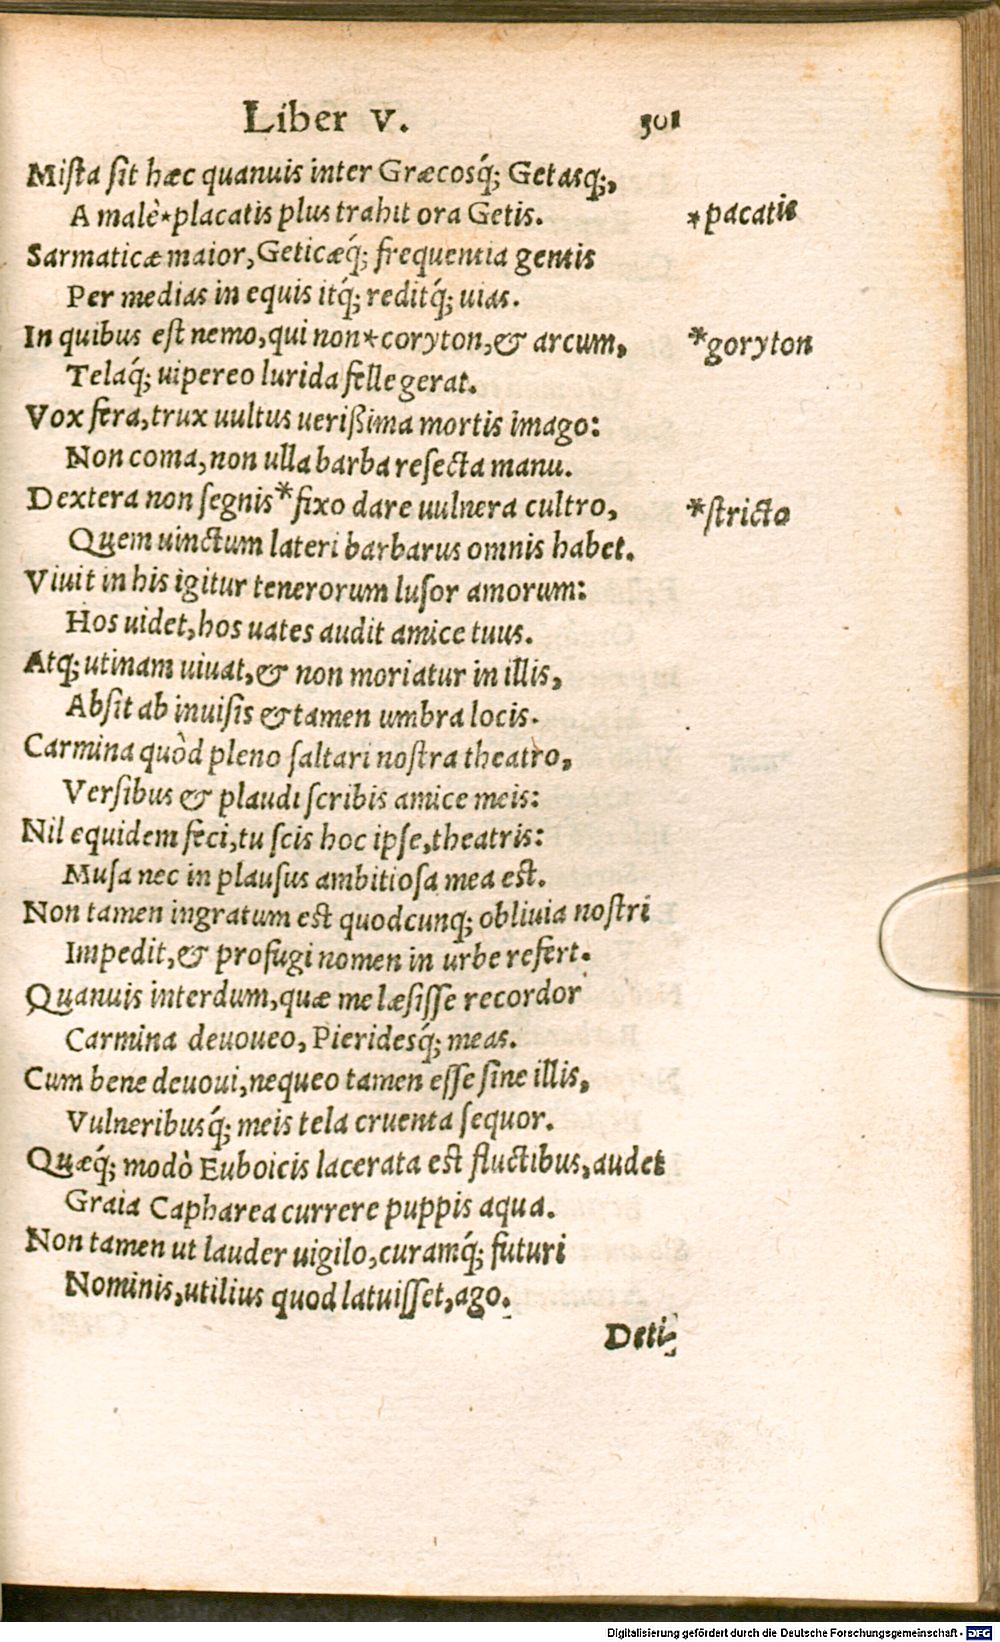 Liber V. 301
Mista sit hæc quanuis inter Græcosq́; Getasq;,
A malè*placatis plus trahit ora Getis. *pacatis
Sarmaticæ maior, Geticæq́; frequentia gentis
Per medias in equis itq́; reditq́; uias.
In quibus est nemo, qui non*coryton, & arcum, *goryton
Telaq́; uipereo lurida felle gerat.
Vox fera, trux uultus uerißima mortis imago:
Non coma, non ulla barba resecta manu.
Dextera non segnis*fixo dare uulnera cultro, *stricto
Quem uinctum lateri barbarus omnis habet.
Viuit in his igitur tenerorum lusor amorum:
Hos uidet, hos uates audit amice tuus.
Atq; utinam uiuat, & non moriatur in illis,
Absit ab inuisis & tamen umbra locis.
Carmina quòd pleno saltari nostra theatro,
Versibus & plaudi scribis amice meis:
Nil equidem feci, tu scis hoc ipse, theatris:
Musa nec in plausus ambitiosa mea est.
Non tamen ingratum est quodcunq; obliuia nostri
Impedit, & profugi nomen in urbe refert.
Quanuis interdum, quæ me læsisse recordor
Carmina deuoueo, Pieridesq́; meas.
Cum bene deuoui, nequeo tamen esse sine illis,
Vulneribusq́; meis tela cruenta sequor.
Quæq́; modò Euboicis lacerata est fluctibus, audet
Graia Capharea currere puppis aqua.
Non tamen ut lauder uigilo, curamq́; futuri
Nominis, utilius quod latuisset, ago.
Deti-
Digitalisierung gefördert durch die Deutsche Forschungsgemeinschaft - DFG